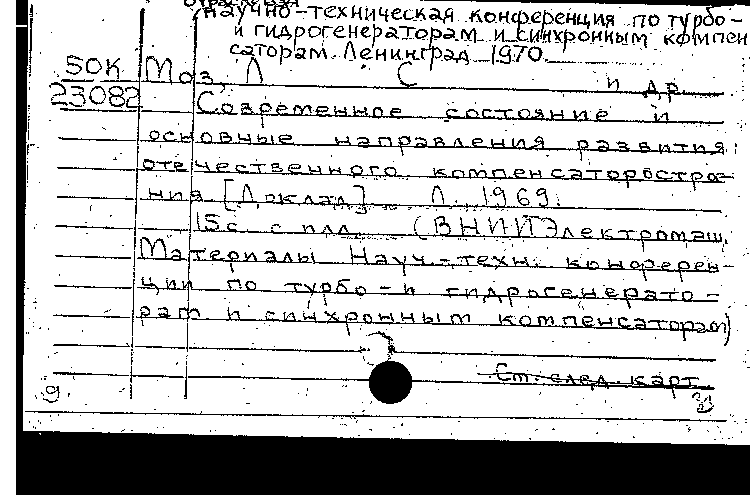 научно-техническая конференция по турбо-
и гидрогенераторам и синхронным компен
саторам. Ленинград 1970.
50К Моз, Л С и др.
23082 Современное состояние и
основные направления развития
отечественного компенсаторостро-
ния. [Доклад]. Л., 1969.
15с. с илл. (ВНИИЭлектромаш.
Материалы Науч.-техн. конферен-
ции по турбо- и гидрогенерато-
рам и синхронным компенсаторам)
См. след. карт.
9.